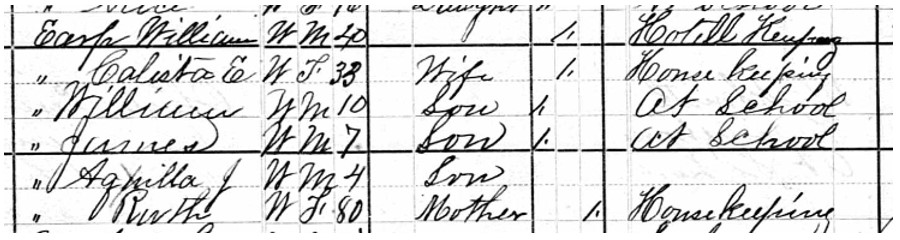 Earp William W M 40 1. Hotell Keeping
" Calista E W F 33 Wife 1. House keeping
" William W M 10 Son 1. At School
" James W M 7 Son 1. At School
" Aquilla J W M 4 Son
" Ruth W F 80 Mother 1. House keeping